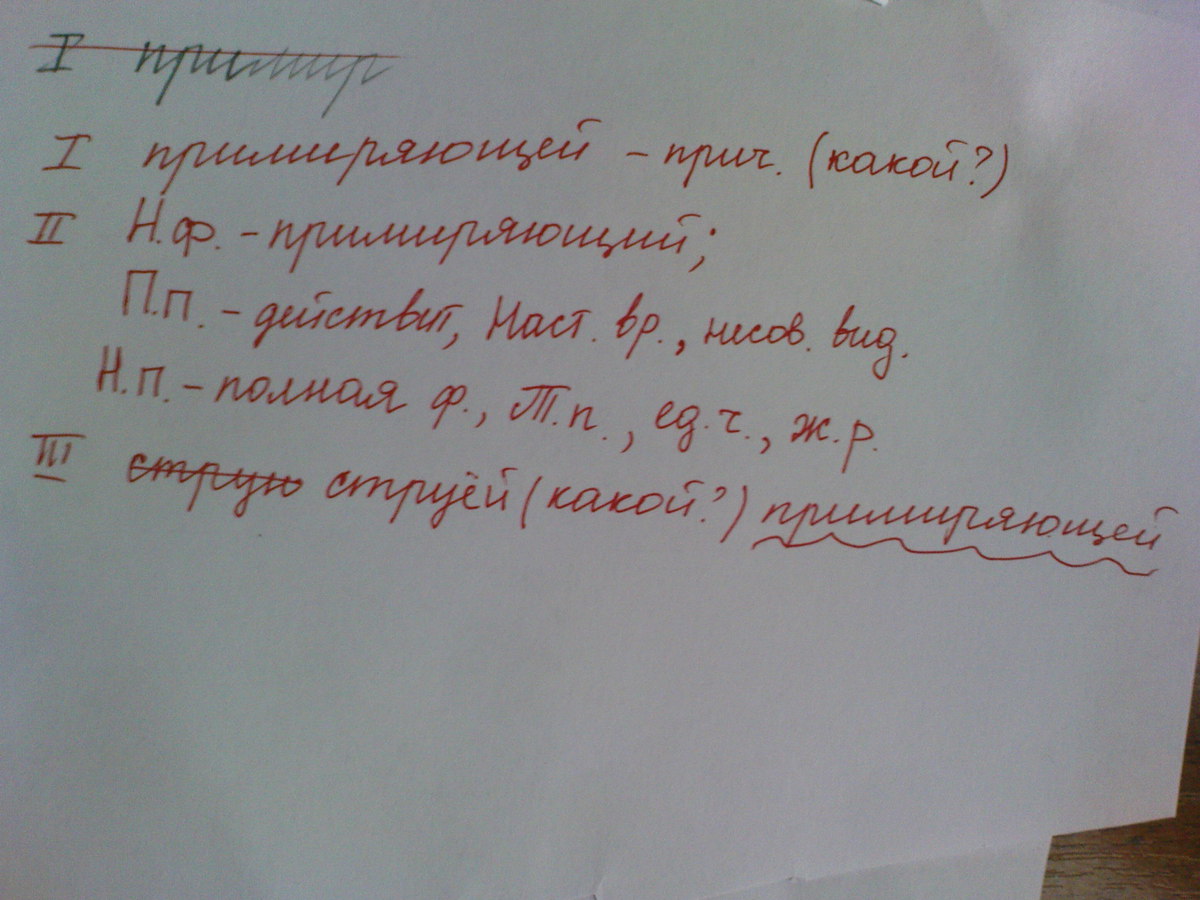 I примир
I примиряющей - прич. (какой?)
II Н.ф. - примиряющий;
П.п. - действит, Наст. вр., несов. вид.
Н.п. - полная ф., Т.п., ед.ч., ж.р.
III струю струёй (какой?) примиряющей